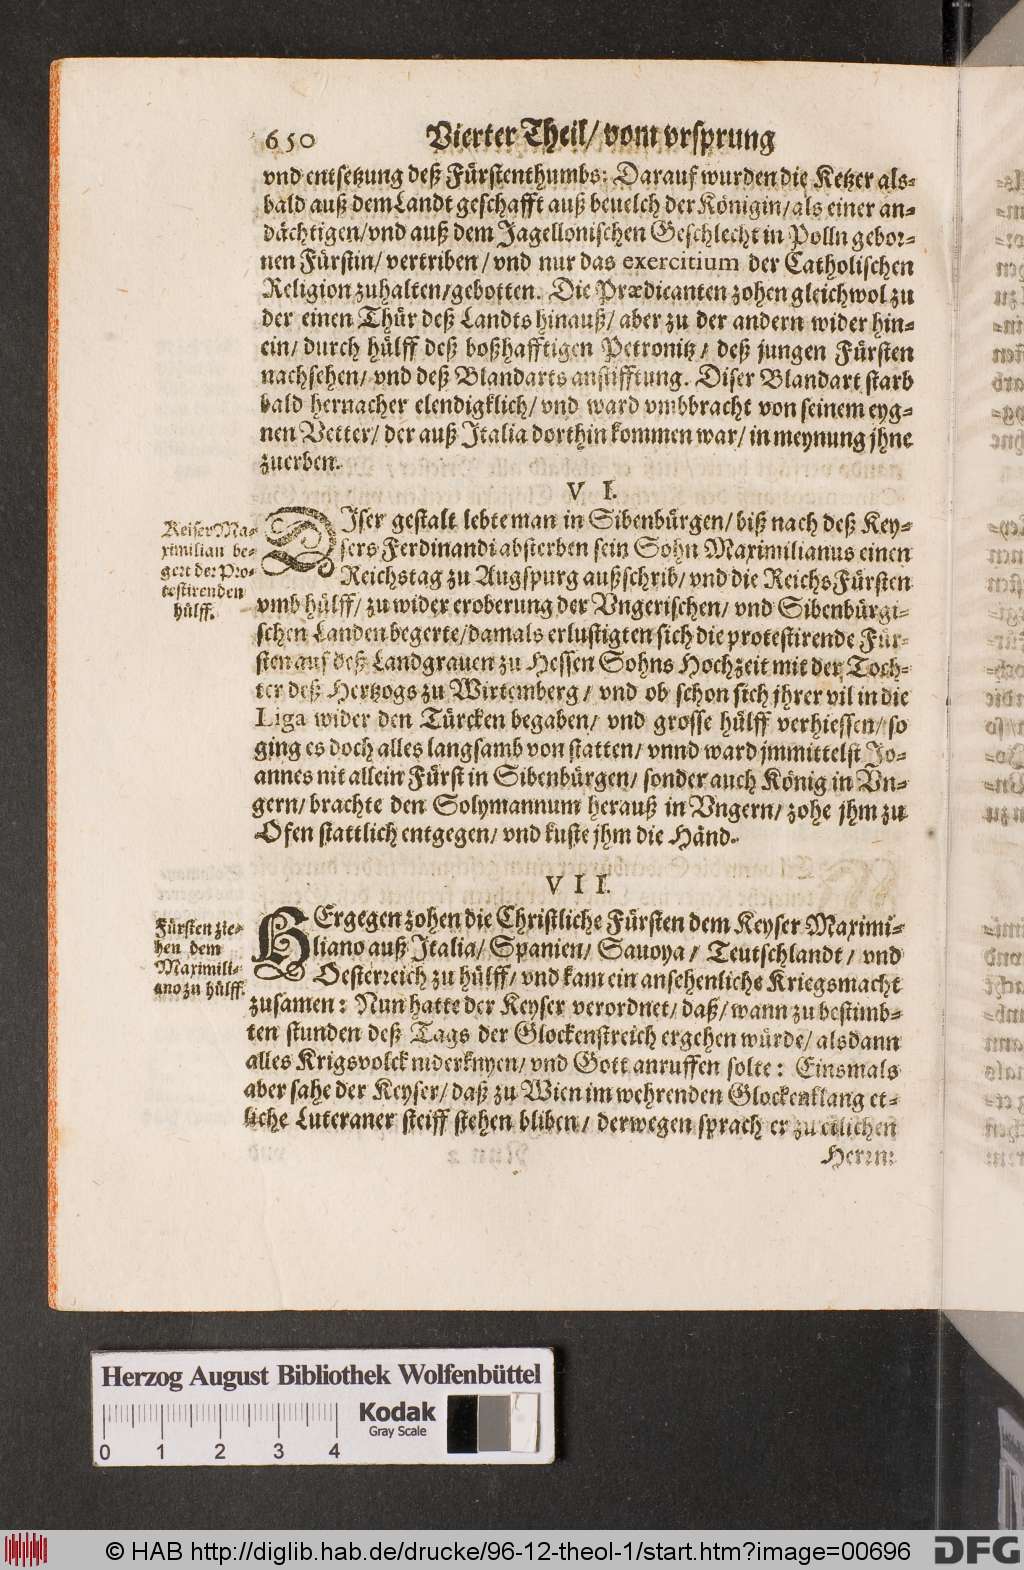 650 Vierter Theil/ vom vrsprung
vnd entsetzung deß Fürstenthumbs: Darauf wurden die Ketzer als-
bald auß dem Landt geschafft auß beuelch der Königin/ als einer an-
dächtigen/ vnd auß dem Jagellonischen Geschlecht in Polln gebor-
nen Fürstin/ vertriben/ vnd nur das exercitium der Catholischen
Religion zuhalten/ gebotten. Die Prædicanten zohen gleichwol zu
der einen Thür deß Landts hinauß/ aber zu der andern wider hin-
ein/ durch hülff deß boßhafftigen Petronitz/ deß jungen Fürsten
nachsehen/ vnd deß Blandarts anstifftung. Diser Blandart starb
bald hernacher elendigklich/ vnd ward vmbbracht von seinem eyg-
nen Vetter/ der auß Italia dorthin kommen war/ in meynung jhne
zuerben.
VI.
Keiser Ma-
ximilian be-
gert der Pro-
testirenden
hülff.
DIser gestalt lebte man in Sibenbürgen/ biß nach deß Key-
sers Ferdinandi absterben sein Sohn Maximilianus einen
Reichstag zu Augspurg außschrib/ vnd die ReichsFürsten
vmb hülff/ zu wider eroberung der Vngerischen/ vnd Sibenbürgi-
schen Landen begerte/ damals erlustigten sich die protestirende Für-
sten auf deß Landgrauen zu Hessen Sohns Hochzeit mit der Toch-
ter deß Hertzogs zu Wirtemberg/ vnd ob schon sich jhrer vil in die
Liga wider den Türcken begaben/ vnd grosse hülff verhiessen/ so
ging es doch alles langsamb von statten/ vnnd ward jmmittelst Jo-
annes nit allein Fürst in Sibenbürgen/ sonder auch König in Vn-
gern/ brachte den Solymannum herauß in Vngern/ zohe jhm zu
Ofen stattlich entgegen/ vnd kuste jhm die Händ.
VII.
Fürsten zie-
hen dem
Maximili-
ano zu hülff.
HErgegen zohen die Christliche Fürsten dem Keyser Maximi-
liano auß Italia/ Spanien/ Sauoya/ Teutschlandt/ vnd
Oesterreich zu hülff/ vnd kam ein ansehenlichs Kriegsmacht
zusamen: Nun hatte der Keyser verordnet/ daß/ wann zu bestimb-
ten stunden deß Tags der Glockenstreich ergehen würde/ alsdann
alles Krigsvolck niderknyen/ vnd Gott anruffen solte: Einsmals
aber sahe der Keyser/ daß zu Wien im wehrenden Glockenklang et-
liche Luteraner steiff stehen bliben/ derwegen sprach er zu etlichen
Herrn:
Herzog August Bibliothek Wolfenbüttel
Kodak
Gray Scale
0 1 2 3 4
© HAB http://diglib.hab.de/drucke/96-12-theol-1/start.htm?image=00696
DFG